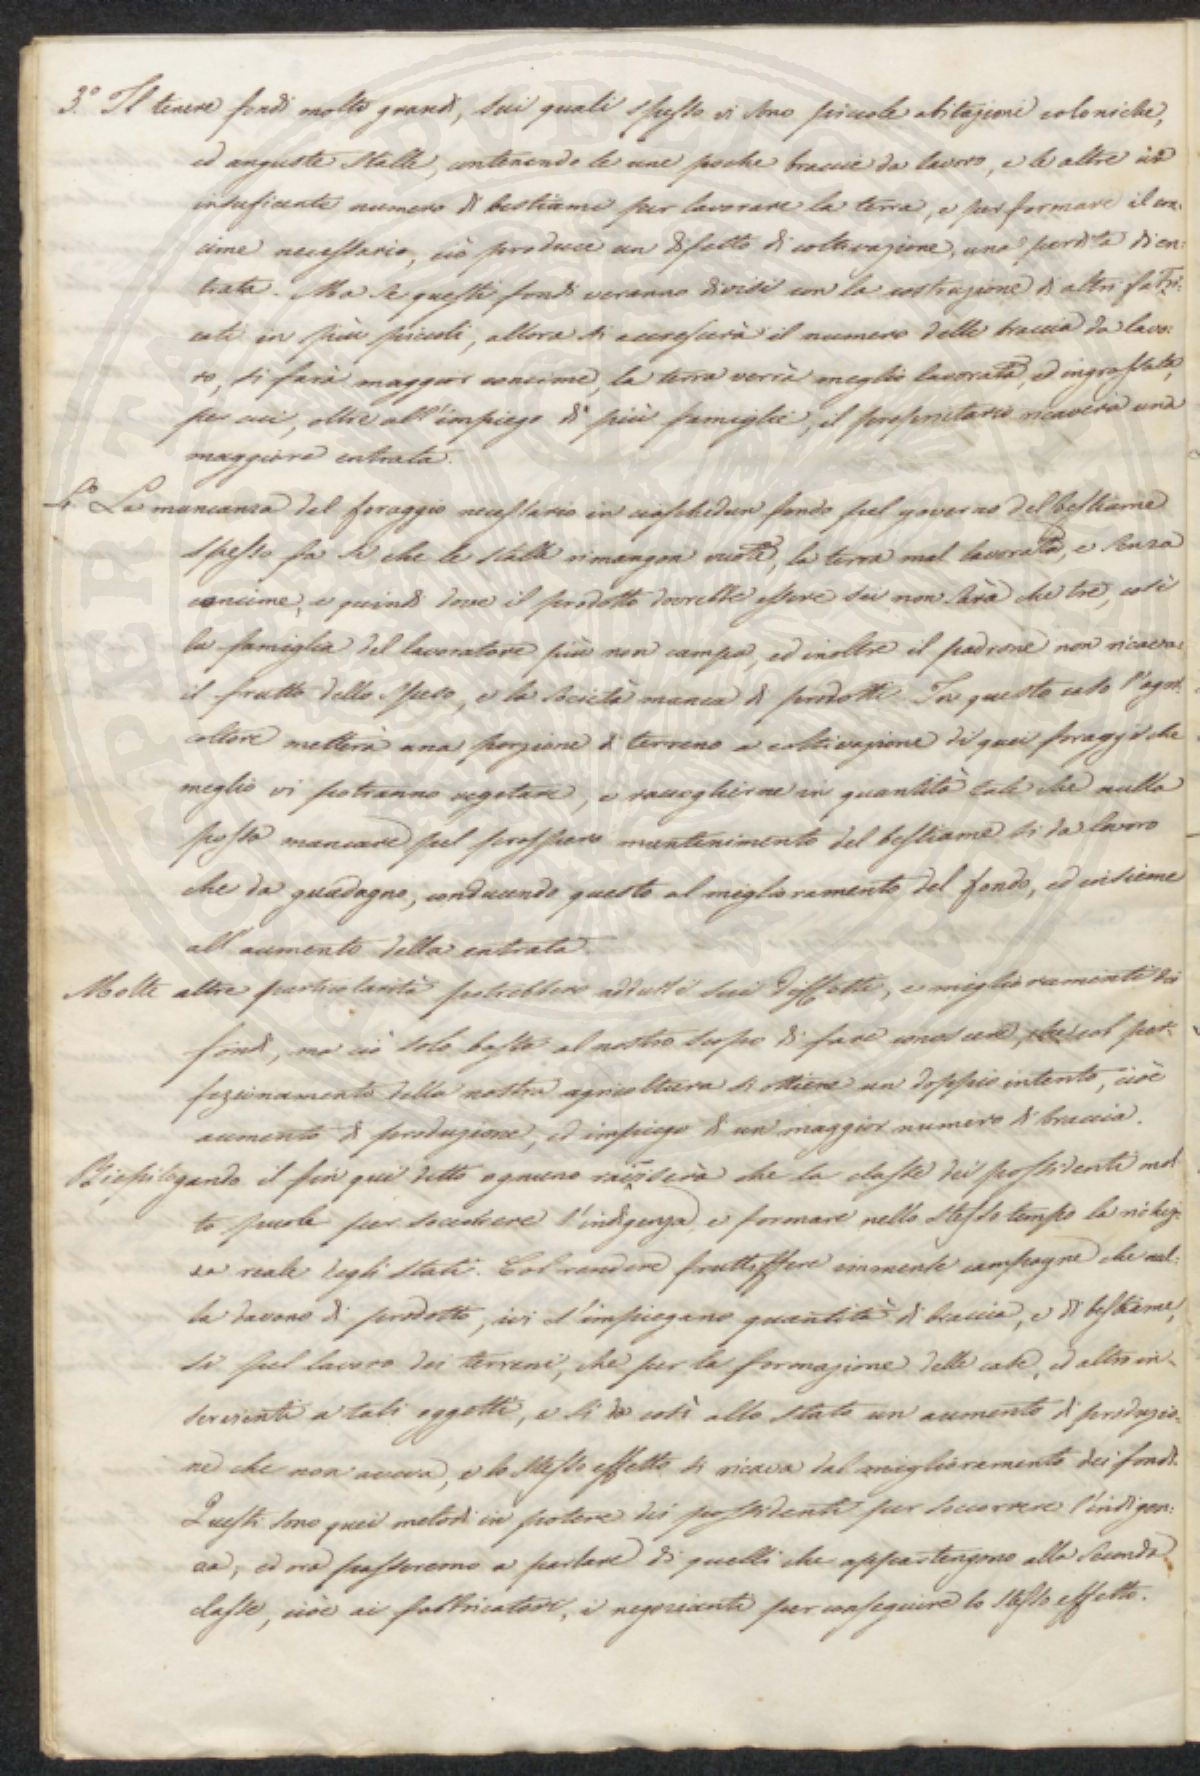 3.º Il tenere fondi molto grandi, sui quali spesso vi sono piccole abitazioni coloniche,
ed anguste stalle, contenendo le une poche braccie da lavoro, e le altre un
insuficente numero di bestiame per lavorare la terra, e per formare il con-
cime necessario, ciò produce un difetto di coltivazione, una perdita di en:
trata. Ma se questi fondi veranno divisi con la costruzione di altri fabri-
cati in più piccoli, allora si accrescerà il numero delle braccia da lavo:
ro, si farà maggior concime, la terra verrà meglio lavorata, ed ingrassata,
per cui, oltre all'impiego di più famiglie, il proprietario ricaverà una
maggiore entrata.
4.º La mancanza del foraggio necessario in ciaschedun fondo pel governo del bestiame
spesso fa si che le stalle rimangon vuote, la terra mal lavorata, e senza
concime, e quindi dove il prodotto dovrebbe essere sei non sarà che tre, così
la famiglia del lavoratore più non campa, ed inoltre il padrone non ricava
il frutto dello speso, e la società manca di prodotti. In questo caso l'agri-
coltore metterà una porzione di terreno a coltivazione di quei foraggi che
meglio vi potranno vegetare, e raccoglierne in quantità tale che nulla
possa mancare pel prospero mantenimento del bestiame si da lavoro
che da guadagno, conducendo questo al miglioramento del fondo, ed insieme
all'aumento della entrata.
Molte altre particolarità potrebbero addursi sui diffetti, e miglioramenti dei
fondi, ma ciò solo basta al nostro scopo di fare conoscere, che col per-
fezionamento della nostra agricoltura si ottiene un doppio intento, cioè
aumento di produzione, ed impiego di un maggior numero di braccia.
Riepilogando il fin quì detto ognuno raviserà che la classe dei possidenti mol
to puole per soccorrere l'indigenza, e formare nello stesso tempo la richez-
za reale degli stati. Col rendere fruttiffere immense campagne che nul:
la davano di prodotto, ivi s'impiegano quantità di braccia, e di bestiame,
si pel lavoro dei terreni, che per la formazione delle case, ed altro in-
serviente a tali oggetti, e si da così allo stato un aumento di produzio-
ne che non aveva, e lo stesso effetto si ricava dal miglioramento dei fondi.
Questi sono quei metodi in potere dei possidenti per soccorrere l'indigen:
za, ed ora passeremo a parlare di quelli che appartengono alla seconda
classe, cioè ai fabbricatori, e negozianti per conseguire lo stesso effetto.